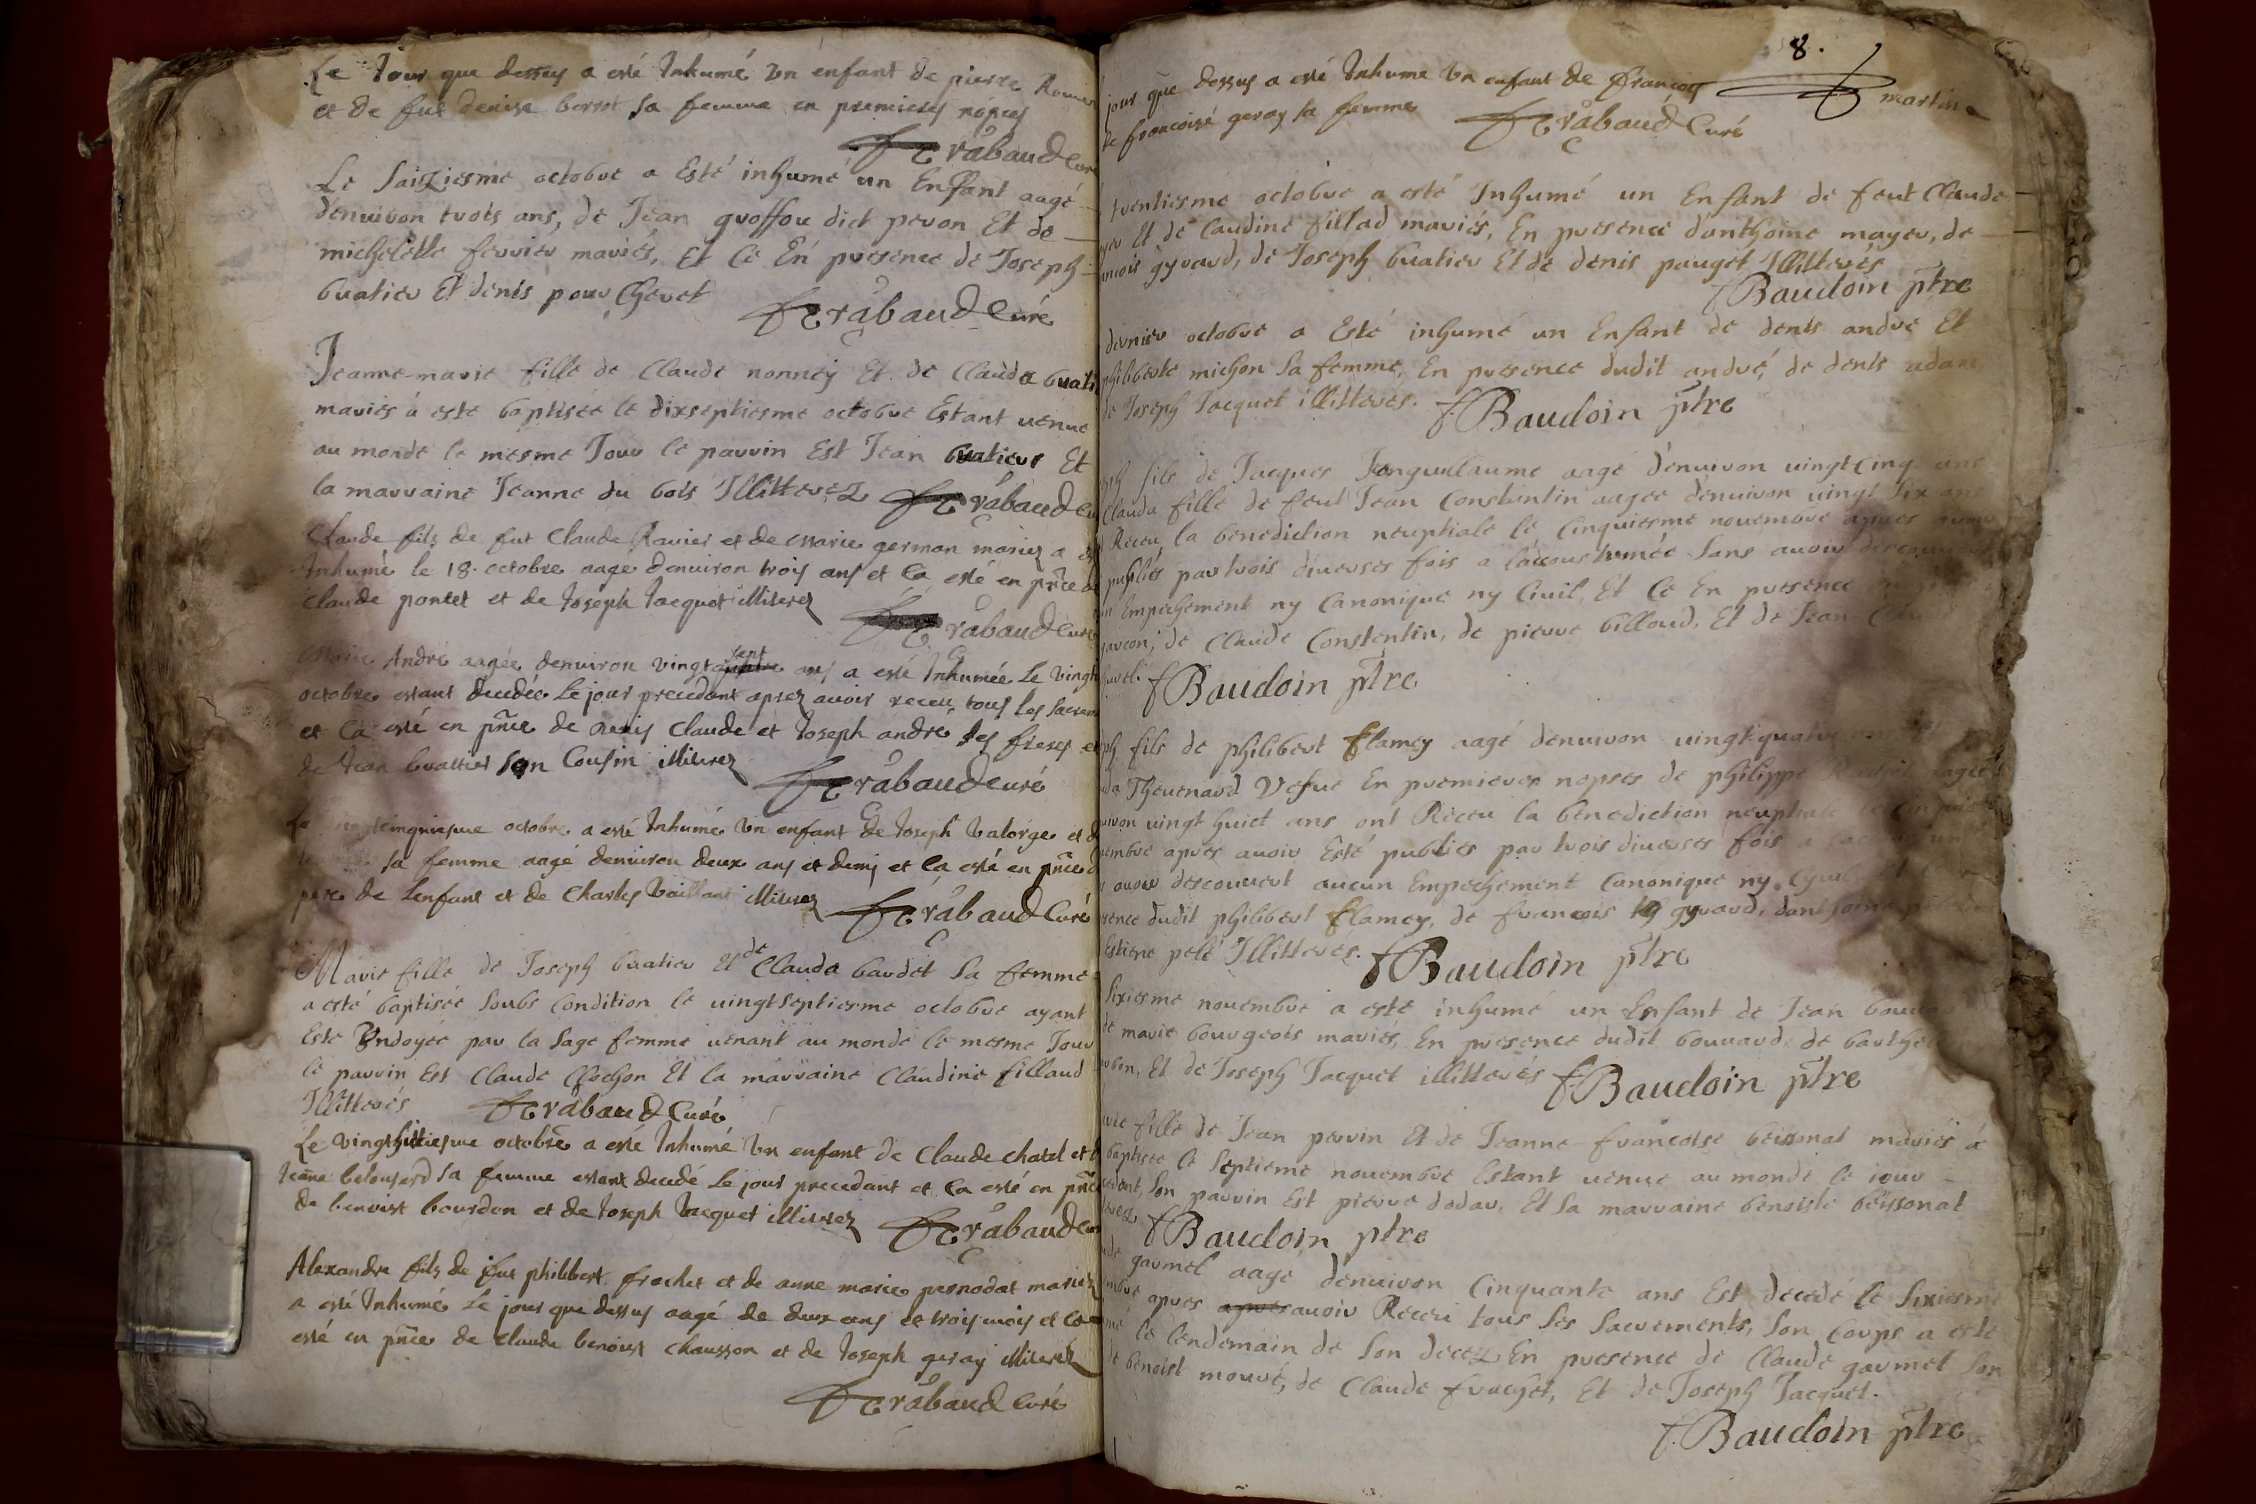 Le Jour que dessus a esté Inhumé Un enfant de pierre
et de fut denise sa femme en premieres nopces
Rabaud Curé
Le Saiziesme octobre a Esté inhumé un Enfant aagé
denuiron trois ans, de Jean groffou dict peron Et de
michelette ferrier mariés, Et Ce En presence de Joseph
buatier Et denis pourchevet
Rabaud Curé
Jeanne-marie fille de Claude nonney Et de Clauda
mariés a esté baptisée le dixseptiesme octobre Estant venue
au monde le mesme Jour le parrin Est Jean buatier Et
la marraine Jeanne du bois Illitterez Rabaud
Claude fils de fut Claude Ravier et de Marie german mariez a
Inhumé le 18. octobre aage denuiron trois ans et Ca esté en pnce de
Claude poncet et de Joseph Jacquet illiterez
Rabaud Curé
André aagée denuiron vingt sept ans a esté Inhumée Le vingt
octobre estant decedée Le jour precedant aprez avoir receu tous les
et Ca esté en pnce de Denis Claude et Joseph andré ses freres et
de Jean buattier son Cousin illiterez
Rabaud Curé
octobre a esté Inhumé Un enfant de Joseph Valorge et
sa femme aagé denuiron deux ans et demy et Ca esté en pnce
pere de Lenfant et de Charles Vaillant illiterez
Rabaud Curé
Marie fille de Joseph buatier Et de Clauda baudet Sa femme
a esté baptisée Soubs Condition le vingtseptiesme octobre ayant
Esté Undoyée par la Sage femme venant au monde le mesme Jour
le parrin Est Claude Clochon Et la marraine Claudine fillaud
Illitterés Rabaud Curé
Le vingthuitiesme octobre a esté Inhumé Un enfant de Claude chatel et
sa femme estant decedé Le jour precedant et Ca esté en pnce
de benoist bourdon et de Joseph Jacquet illiterez
Rabaud
Alexandre fils de fut philibert frachet et de anne marie pernodat mariez
a esté Inhumé Le jour que dessus aagé de deux ans et trois mois et Ca
esté en pnce de Claude benoist Chausson et de Joseph geray illiterez
Rabaud Curé
8.
jour que dessus a esté Inhumé Un enfant de françois martin
de francoise geray sa femme Rabaud Curé
trentiesme octobre a esté Inhumé un Enfant de feut Claude
Et de Claudine fillad mariés, En presence d'anthoine mayer, de
gyrard, de Joseph buatier Et de denis pauget Illitterés
f Baudoin ptre
dernier octobre a Esté inhumé un Enfant de denis andré Et
philiberte michon Sa femme, En presence dudit andré, de denis adam
de Joseph Jacquet illitterés. f Baudoin ptre
fils de Jacques Janguillaume aagé denuiron vingt Cinq ans
Clauda fille de feut Jean Constentin aagee denuiron vingt Six ans
Receu la benediction neuptiale le Cinquiesme novembre apres
publiés par trois diverses fois a laccoustumée Sans avoir
Empechement ny Canonique ny Civil, Et Ce En presence
de Claude Constentin, de pierre billoud, Et de Jean
f Baudoin ptre
fils de philibert flamey aagé denuiron vingt quatre
Thevenard Vefve En premieres nopses de philippe
vingt huict ans ont Receu la benediction neuptiale
apres avoir Esté publiés par trois diverses fois
avoir descouvert aucun Empechement Canonique ny
dudit philibert flamey, de francois gyrard,
Estiene pelé Illitterés. f Baudoin ptre
Sixiesme novembre a esté inhumé un Enfant de Jean
de marie bourgeois mariés, En presence dudit bouvard, de
Et de Joseph Jacquet illitterés f Baudoin ptre
fille de Jean perrin Et de Jeanne-francoise beissonat mariés a
baptisee le Septieme novembre Estant venue au monde le iour
Son parrin Est pierre dodar, Et Sa marraine benoiste beissonat
f Baudoin ptre
garmel aagé denuiron Cinquante ans Est decedé le Sixiesme
apres avoir Receu tous Ses Sacrements, Son Corps a esté
le lendemain de Son decez En presence de Claude garmel Son
de benoist mouré, de Claude frachet, Et de Joseph Jacquet.
f. Baudoin ptre